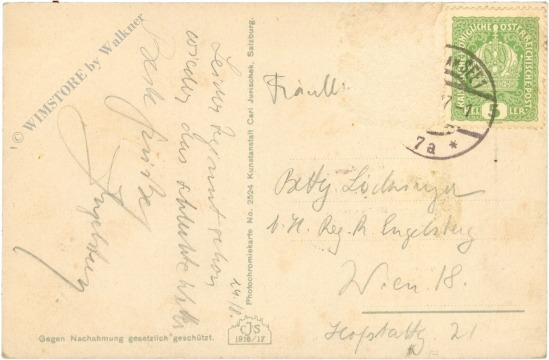 © WIMSTORE by Walkner
24/8.
Leider beginnt schon
wieder das schlechte Wetter
Beste Grüße
Engelsberg
Photochromiekarte No. 2524 Kunstanstalt Carl Jurischek, Salzburg.
KAISERLICHE KÖNIGLICHE ÖSTERREICHISCHE POST
5 HELLER 5
7a *
Fräulein
Betty
Reg. R. Engelsberg
Wien 18.
21
Gegen Nachahmung gesetzlich geschützt.
CJS
1916/17